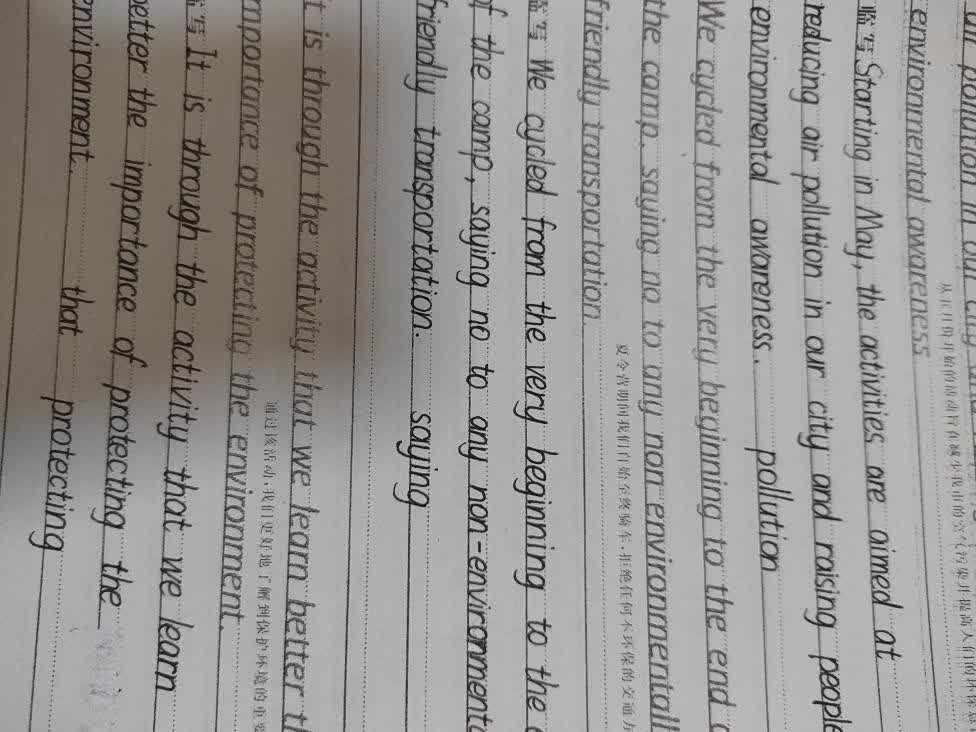 environmental awareness
从五月份开始的活动旨在减少我市的空气污染并提高人们的环保意
临写 Starting in May, the activities are aimed at
reducing air pollution in our city and raising people
environmental awareness. pollution
We cycled from the very beginning to the end
the camp, saying no to any non environmentall
夏令营期间我们自始至终骑车,拒绝任何不环保的交通方
friendly transportation.
临写 We cycled from the very beginning to the
of the camp, saying no to any non-environment
friendly transportation. saying
It is through the activity that we learn better
通过该活动,我们更好地了解到保护环境的重要
importance of protecting the environment.
临写 It is through the activity that we learn
better the importance of protecting the
environment. that protecting